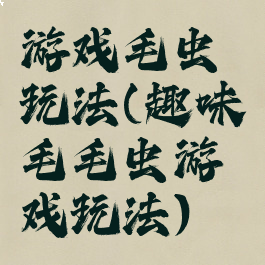 游戏毛虫
玩法(趣味
毛毛虫游
戏玩法)